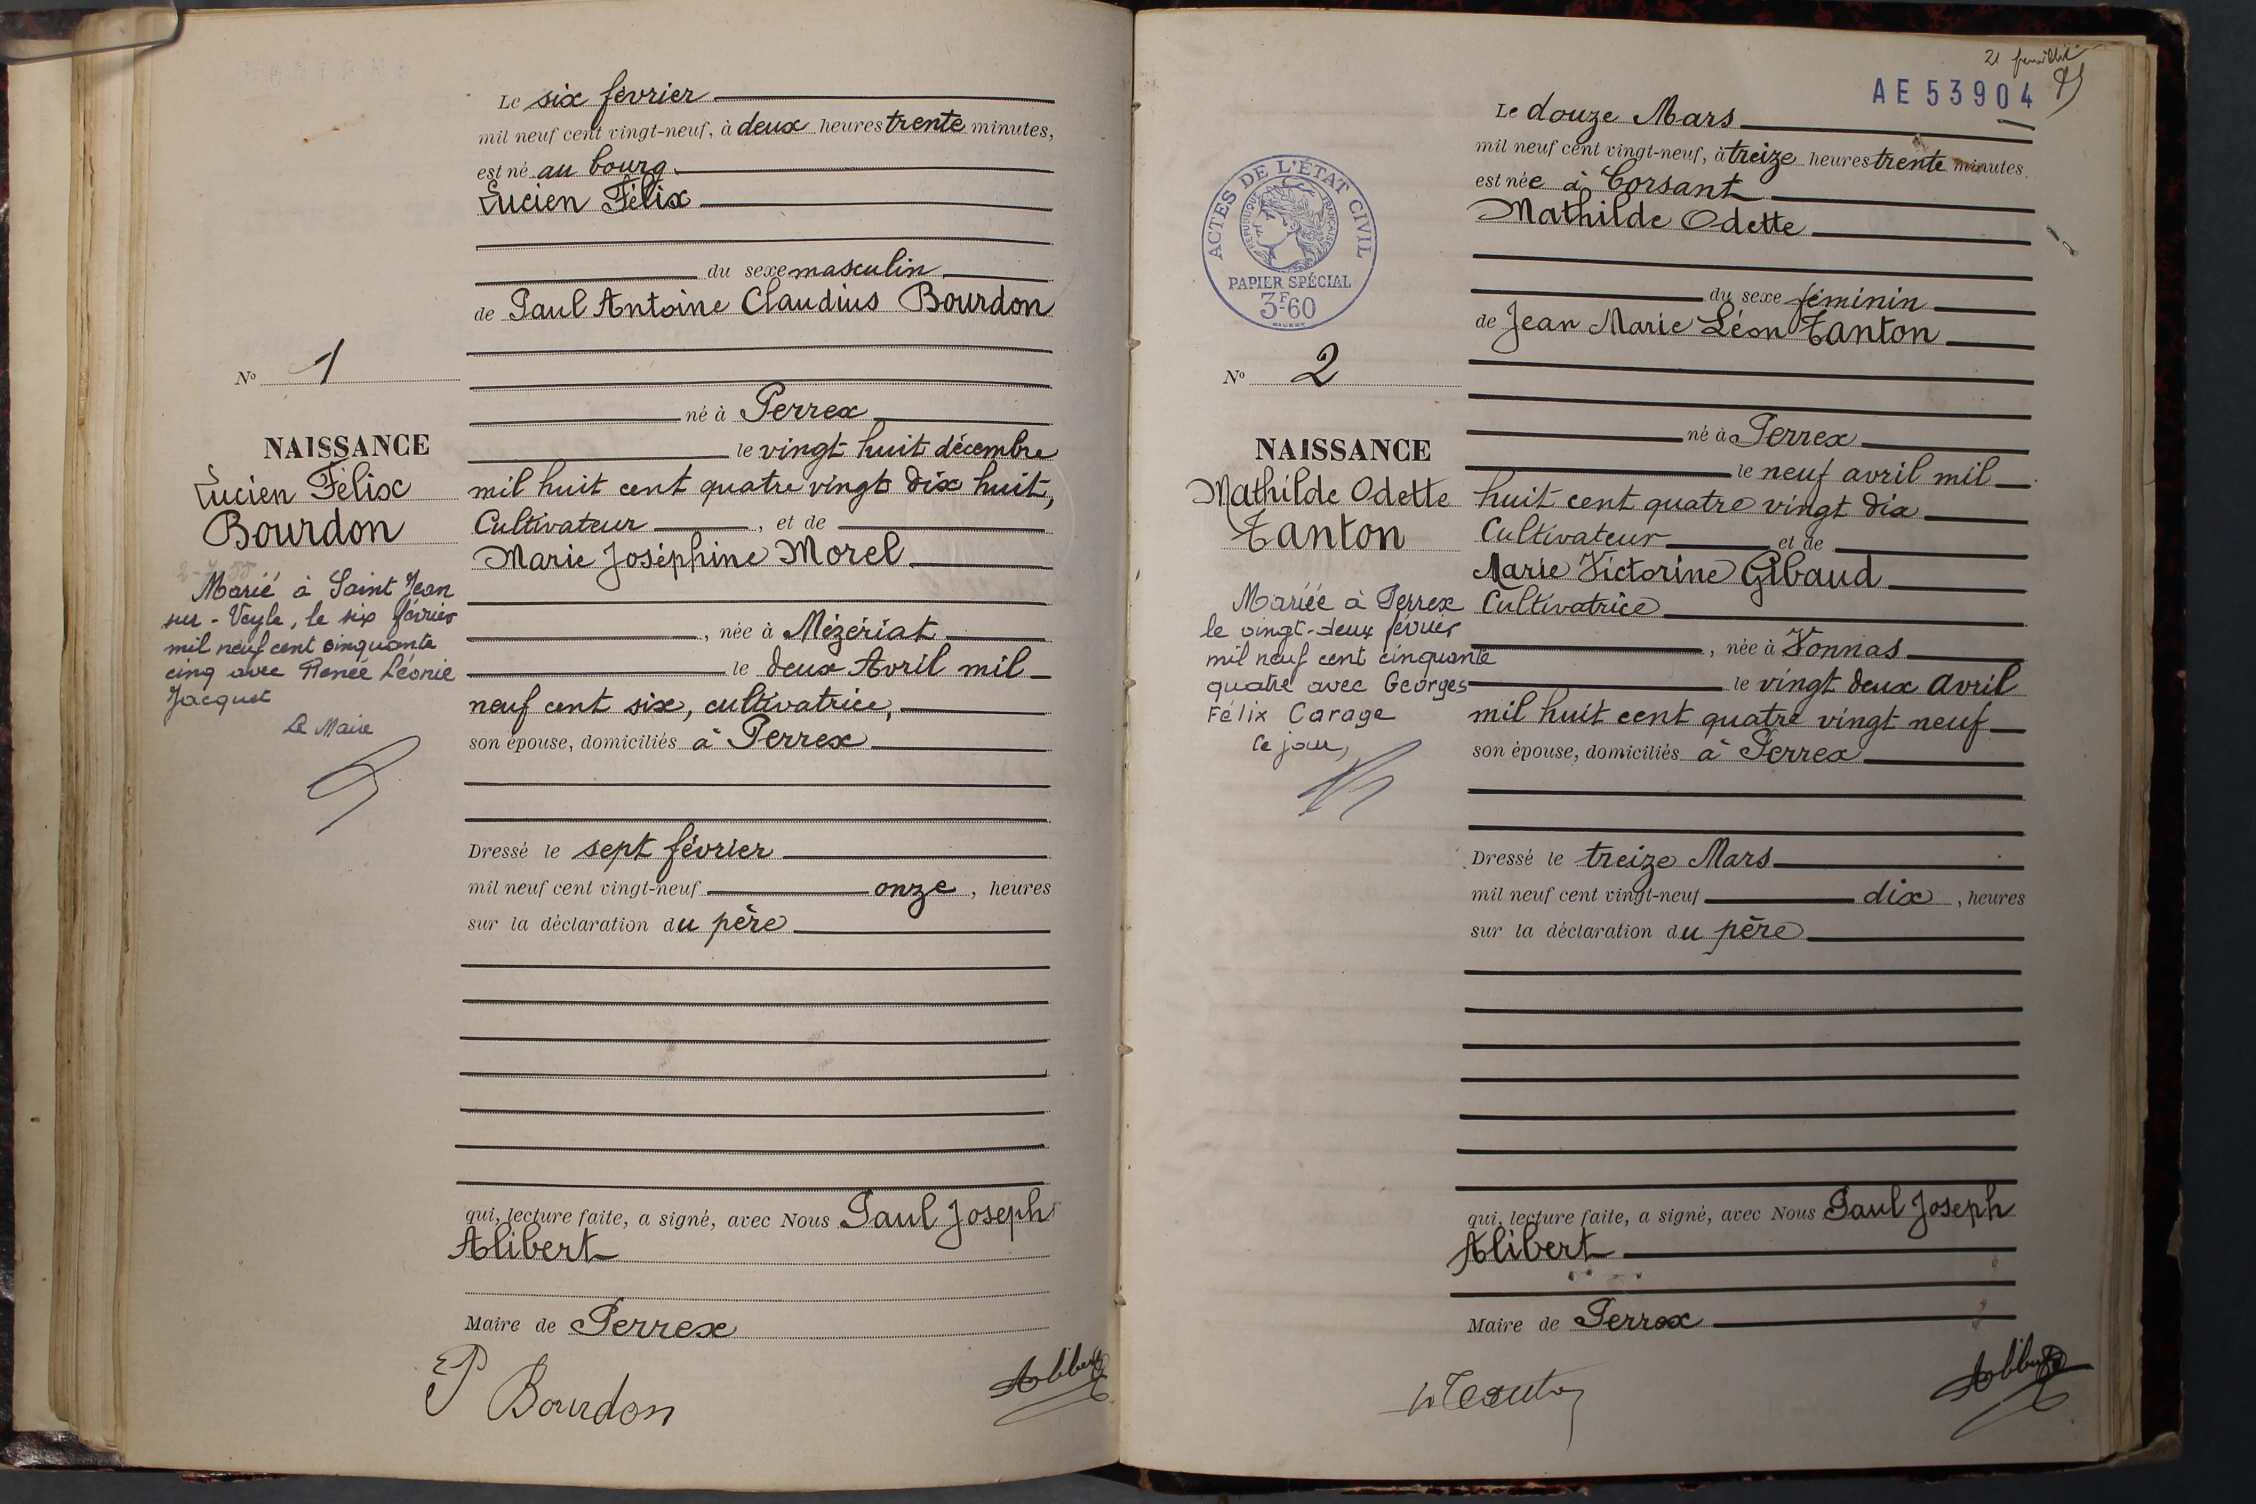 Le six février
mil neuf cent vingt-neuf, à deux heures trente minutes,
est né au bourg
Lucien Félix
du sexe masculin
de Paul Antoine Claudius Bourdon
né à Perrex
le vingt huit décembre
mil huit cent quatre vingt dix huit,
Cultivateur, et de
Marie Joséphine Morel
, née à Mézériat
le deux Avril mil
neuf cent six, cultivatrice,
son épouse, domiciliés à Perrex
Dressé le sept février
mil neuf cent vingt-neuf onze, heures
sur la déclaration du père
qui, lecture faite, a signé, avec Nous Paul Joseph
Alibert
Maire de Perrex
P Bourdon
Alibert
No 1
NAISSANCE
Lucien Félix
Bourdon
Marié à Saint Jean
sur-Veyle, le six février
mil neuf cent cinquante
cinq avec Renée Léonie
Jacquet
Le Maire
21 feuillet
AE 53904
Le douze Mars
mil neuf cent vingt-neuf, à treize heures trente minutes
est née à Corsant
Mathilde Odette
du sexe féminin
de Jean Marie Léon Tanton
né à Perrex
le neuf avril mil
huit cent quatre vingt dix
Cultivateur et de
Marie Victorine Gibaud
Cultivatrice
, née à Vonnas
le vingt deux avril
mil huit cent quatre vingt neuf
son épouse, domiciliés à Perrex
Dressé le treize Mars
mil neuf cent vingt-neuf dix, heures
sur la déclaration du père
qui, lecture faite, a signé, avec Nous Paul Joseph
Alibert
Maire de Perrex
Alibert
ACTES DE L'ÉTAT CIVIL
RÉPUBLIQUE FRANÇAISE
PAPIER SPÉCIAL
3F60
No 2
NAISSANCE
Mathilde Odette
Tanton
Mariée à Perrex
le vingt-deux février
mil neuf cent cinquante
quatre avec Georges
Félix Carage
Ce jour,